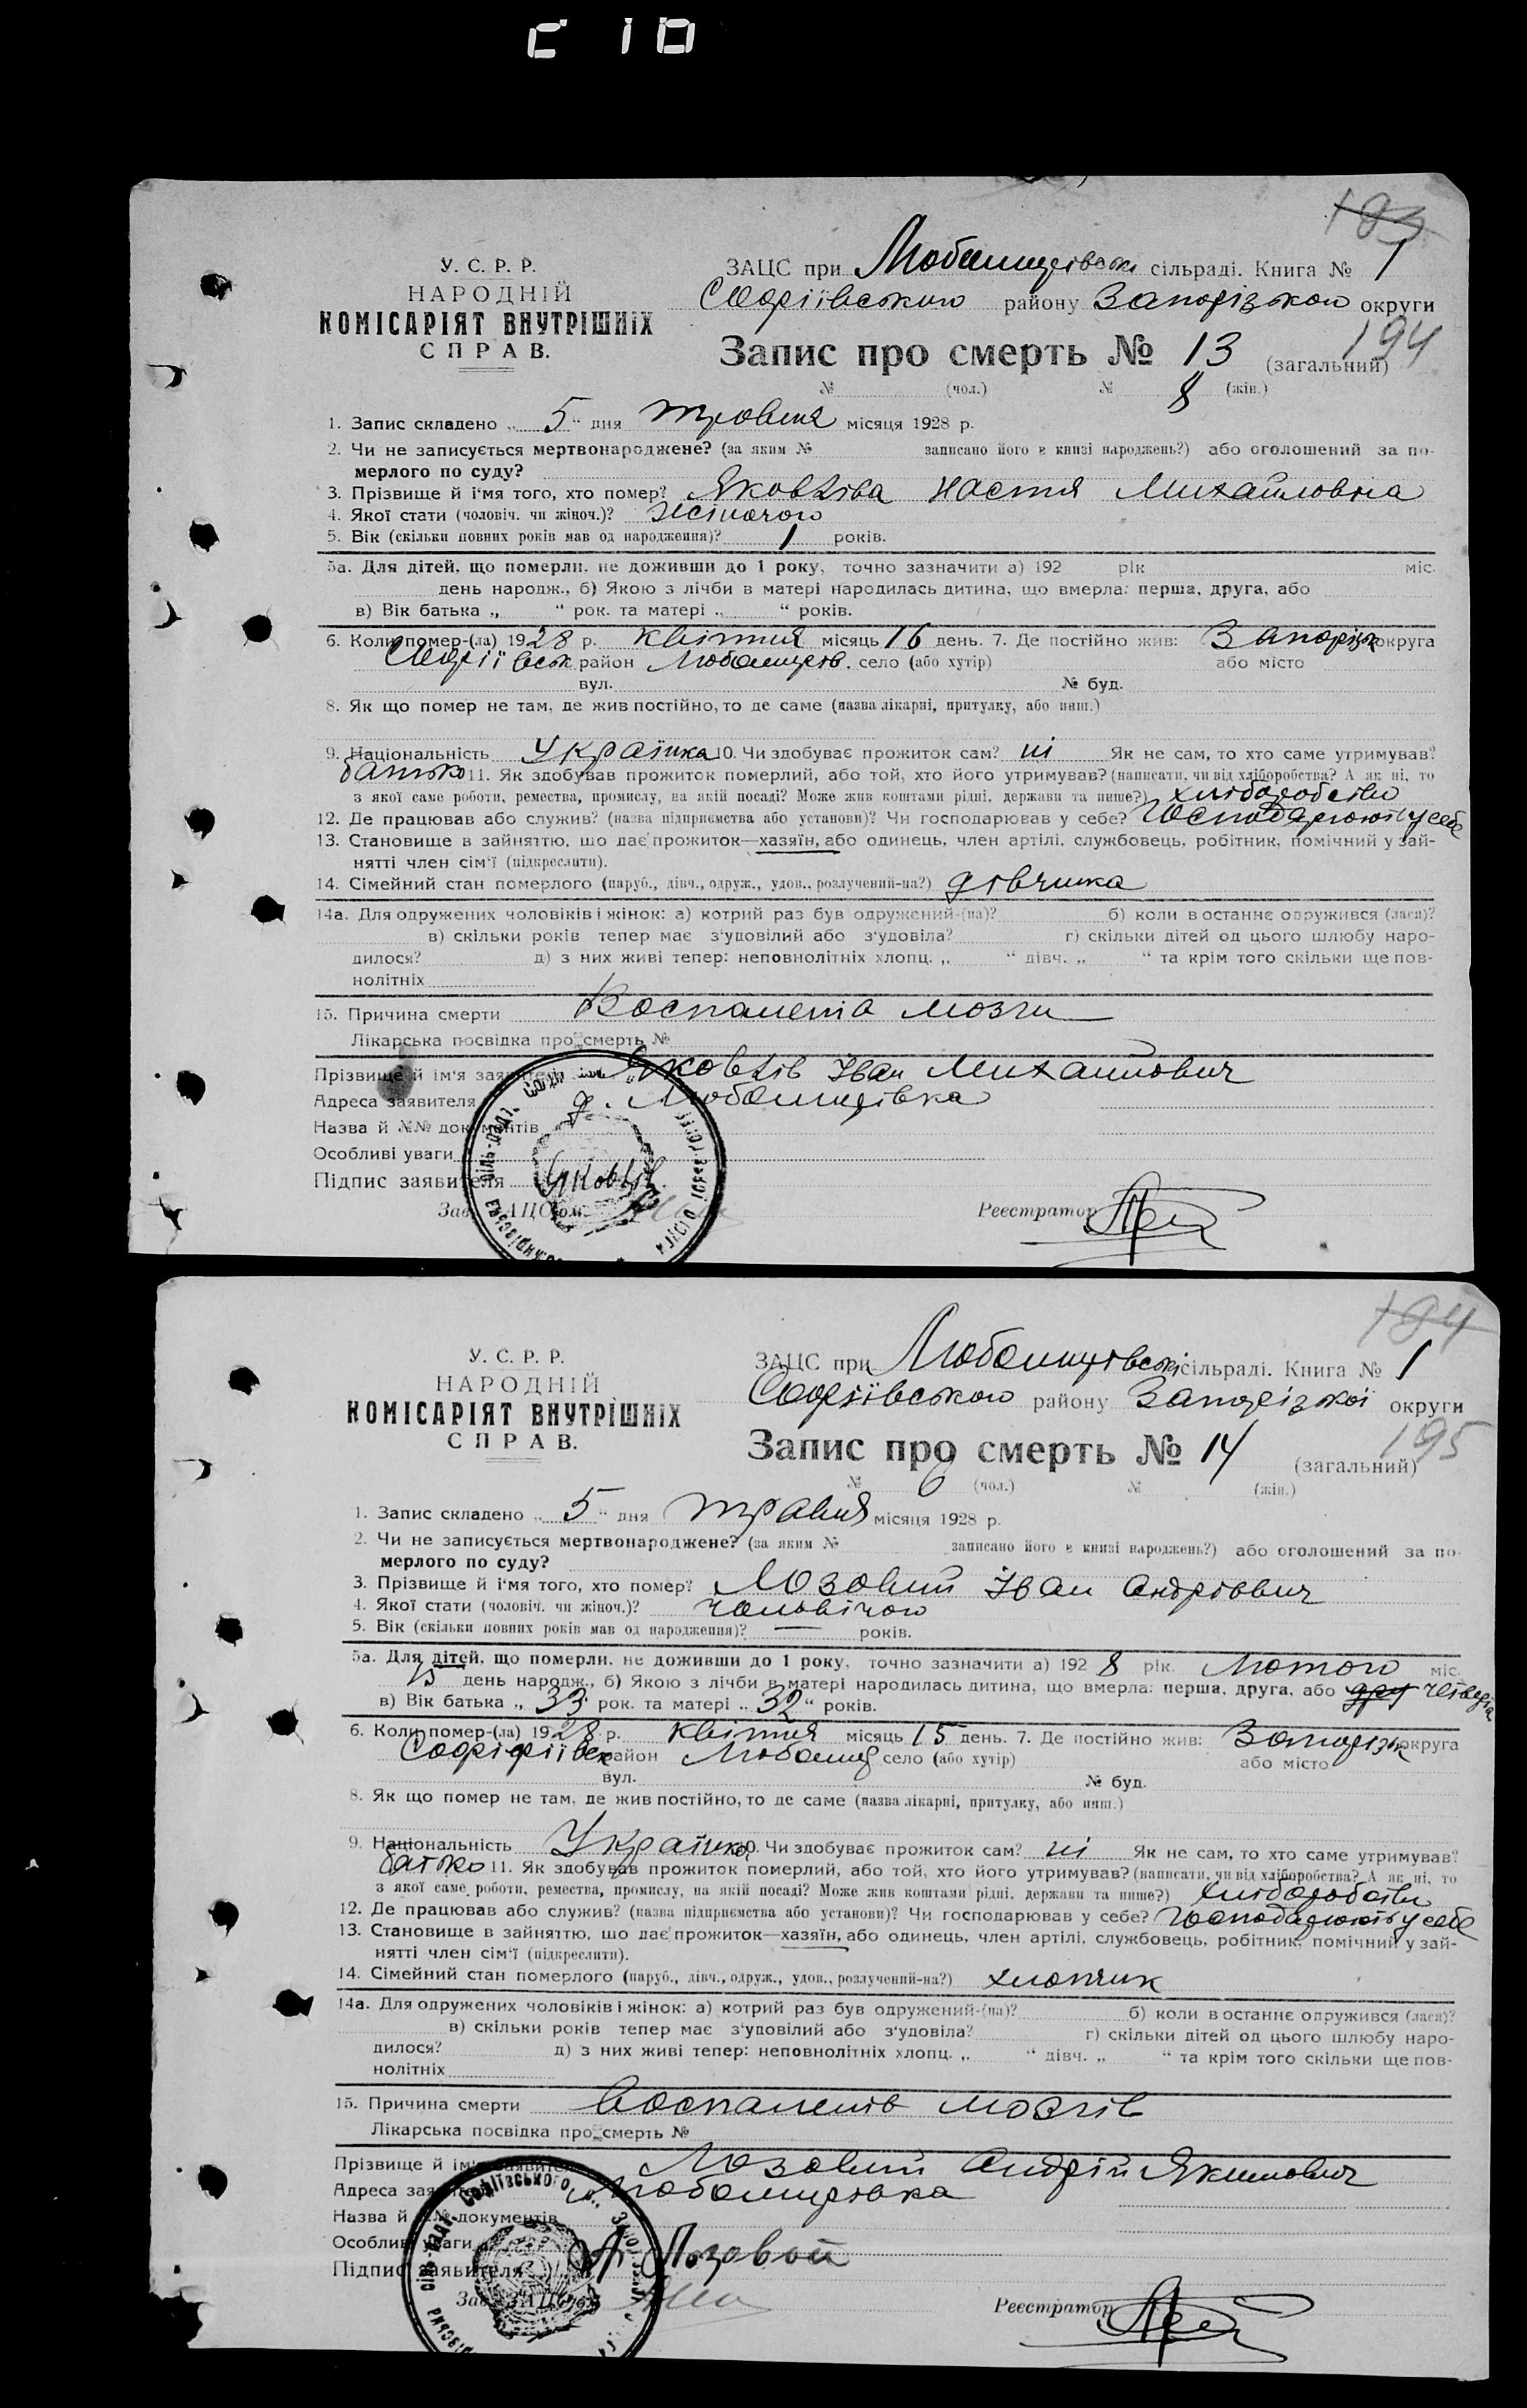 183
У. С. Р. Р.
НАРОДНІЙ
КОМІСАРІЯТ ВНУТРІШНІХ
СПРАВ.
ЗАЦС при сільраді. Книга № 1
району Запорізькою округи
194
Запис про смерть № 13 (загальний)
№ (чол.) № 8 (жін.)
1. Запис складено „ 5 “ дня травня місяця 1928 р.
2. Чи не записується мертвонароджене? (за яким № записано його в книзі народжень?) або оголошений за по-
мерлого по суду?
3. Прізвище й і'мя того, хто помер? Яковлів Настя Михайловна
4. Якої стати (чоловіч. чи жіноч.)? жіночого
5. Вік (скільки повних років мав од народження)? 1 років.
5а. Для дітей, що померли, не доживши до 1 року, точно зазначити а) 192 рік міс.
день народж., б) Якою з лічби в матері народилась дитина, що вмерла: перша, друга, або
в) Вік батька „ “ рок. та матері „ “ років.
6. Коли помер-(ла) 1928 р. квітня місяць 16 день. 7. Де постійно жив: Запоріж округа
район село (або хутір) або місто
вул. № буд.
8. Як що помер не там, де жив постійно, то де саме (назва лікарні, притулку, або инш.)
9. Національність Українка 10. Чи здобуває прожиток сам? ні Як не сам, то хто саме утримував?
батько 11. Як здобував прожиток померлий, або той, хто його утримував? (написати, чи від хліборобства? А як ні, то
з якої саме роботи, ремества, промислу, на якій посаді? Може жив коштами рідні, держави та инше?) хліборобство
12. Де працював або служив? (назва підприємства або установи)? Чи господарював у себе? Господарюють у себе
13. Становище в зайняттю, що дає прожиток—хазяїн, або одинець, член артілі, службовець, робітник, помічний у зай-
нятті член сім'ї (підкреслити).
14. Сімейний стан померлого (паруб., дівч., одруж., удов., розлучений-на?) дівчинка
14а. Для одружених чоловіків і жінок: а) котрий раз був одружений-(на)? б) коли в останнє одружився (лася)?
в) скільки років тепер має з'уповілий або з'удовіла? г) скільки дітей од цього шлюбу наро-
дилося? д) з них живі тепер: неповнолітніх хлопц. „ “ дівч. „ “ та крім того скільки ще пов-
нолітніх
15. Причина смерти Воспаленіа мозгу
Лікарська посвідка про смерть №
Прізвище й ім'я заявителя Яковлів Іван Михайлович
Адреса заявителя
Назва й №№ документів
Особливі уваги
Підпис заявителя Яковлів
Зав. ЗАЦСом Реєстратор
184
У. С. Р. Р.
НАРОДНІЙ
КОМІСАРІЯТ ВНУТРІШНІХ
СПРАВ.
ЗАЦС при сільраді. Книга № 1
Софіївського району Запорізької округи
195
Запис про смерть № 14 (загальний)
№ 6 (чол.) № (жін.)
1. Запис складено „ 5 “ дня травня місяця 1928 р.
2. Чи не записується мертвонароджене? (за яким № записано його в книзі народжень?) або оголошений за по-
мерлого по суду?
3. Прізвище й і'мя того, хто помер? Лозовий Іван Андрієвич
4. Якої стати (чоловіч. чи жіноч.)? чоловічого
5. Вік (скільки повних років мав од народження)? — років.
5а. Для дітей, що померли, не доживши до 1 року, точно зазначити а) 1928 рік Лютого міс.
день народж., б) Якою з лічби в матері народилась дитина, що вмерла: перша, друга, або дру четверта
в) Вік батька „ 33 “ рок. та матері „ 32 “ років.
6. Коли помер-(ла) 1928 р. квітня місяць 15 день. 7. Де постійно жив: округа
район село (або хутір) або місто
вул. № буд.
8. Як що помер не там, де жив постійно, то де саме (назва лікарні, притулку, або инш.)
9. Національність 10. Чи здобуває прожиток сам? ні Як не сам, то хто саме утримував?
батько 11. Як здобував прожиток померлий, або той, хто його утримував? (написати, чи від хліборобства? А як ні, то
з якої саме роботи, ремества, промислу, на якій посаді? Може жив коштами рідні, держави та инше?) хліборобство
12. Де працював або служив? (назва підприємства або установи)? Чи господарював у себе? Господарюють у себе
13. Становище в зайняттю, що дає прожиток—хазяїн, або одинець, член артілі, службовець, робітник, помічний у зай-
нятті член сім'ї (підкреслити).
14. Сімейний стан померлого (паруб., дівч., одруж., удов., розлучений-на?) хлопчик
14а. Для одружених чоловіків і жінок: а) котрий раз був одружений-(на)? б) коли в останнє одружився (лася)?
в) скільки років тепер має з'уповілий або з'удовіла? г) скільки дітей од цього шлюбу наро-
дилося? д) з них живі тепер: неповнолітніх хлопц. „ “ дівч. „ “ та крім того скільки ще пов-
нолітніх
15. Причина смерти Воспаленів мозгів
Лікарська посвідка про смерть №
Прізвище й ім'я заявителя Лозовий Андрій Якимович
Адреса заявителя
Назва й №№ документів
Особливі уваги
Підпис заявителя А Лозовой
Зав. ЗАЦСом Реєстратор